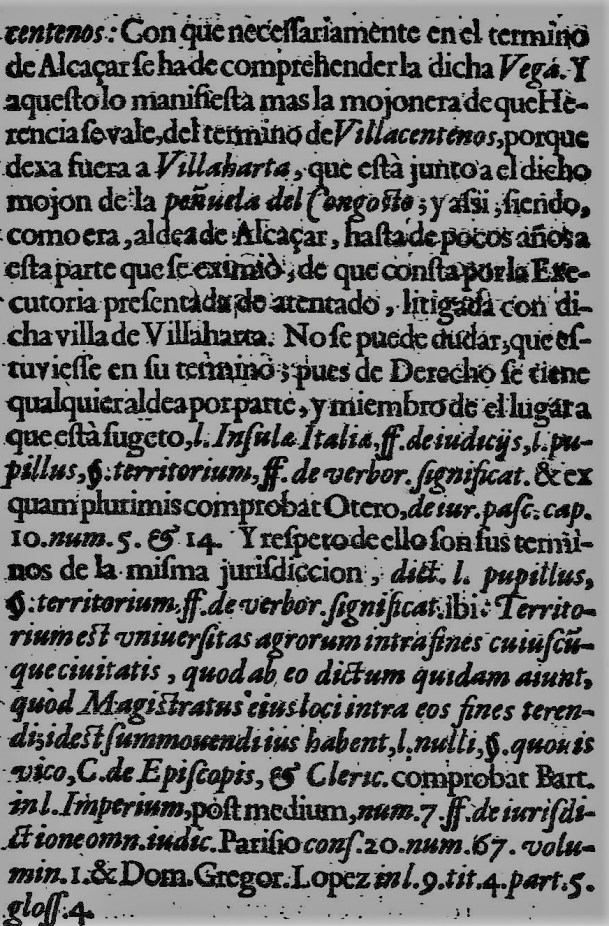 centenos: Con que necessariamente en el termino
de Alcaçar se ha de comprehender la dicha Vega. Y
aquesto lo manifiesta mas la mojonera de que He-
rencia se vale, del termino de Villacentenos, porque
dexa fuera a Villaharta, que està junto a el dicho
mojon de la peñuela del Congosto; y assi, siendo,
como era, aldea de Alcaçar, hasta de pocos años a
esta parte que se eximiò, de que consta por la Exe-
cutoria presentada de atentado, litigada con di-
cha villa de Villaharta. No se puede dudar, que es-
tuviesse en su termino; pues de Derecho se tiene
qualquier aldea por parte, y miembro de el lugar a
que està sugeto, l. Insulæ Italiæ, ff. de iudicijs, l. pu-
pillus, §. territorium, ff. de verbor. significat. & ex
quam plurimis comprobat Otero, de iur. pasc. cap.
10. num. 5. & 14. Y respeto de ello son sus termi-
nos de la misma jurisdiccion, dict. l. pupillus,
§. territorium, ff. de verbor. significat. ibi: Territo-
rium est vniuersitas agrorum intra fines cuiuscũ-
que ciuitatis, quod ab eo dictum quidam aiunt,
quòd Magistratus eius loci intra eos fines teren-
di, id est summouendi ius habent, l. nulli, §. quouis
vico, C. de Episcopis, & Cleric. comprobat Bart.
in l. Imperium, post medium, num. 7. ff. de iurisdi-
ctione omn. iudic. Parisio cons. 20. num. 67. volu-
min. 1. & Dom. Gregor. Lopez in l. 9. tit. 4. part. 5.
gloss. 4.